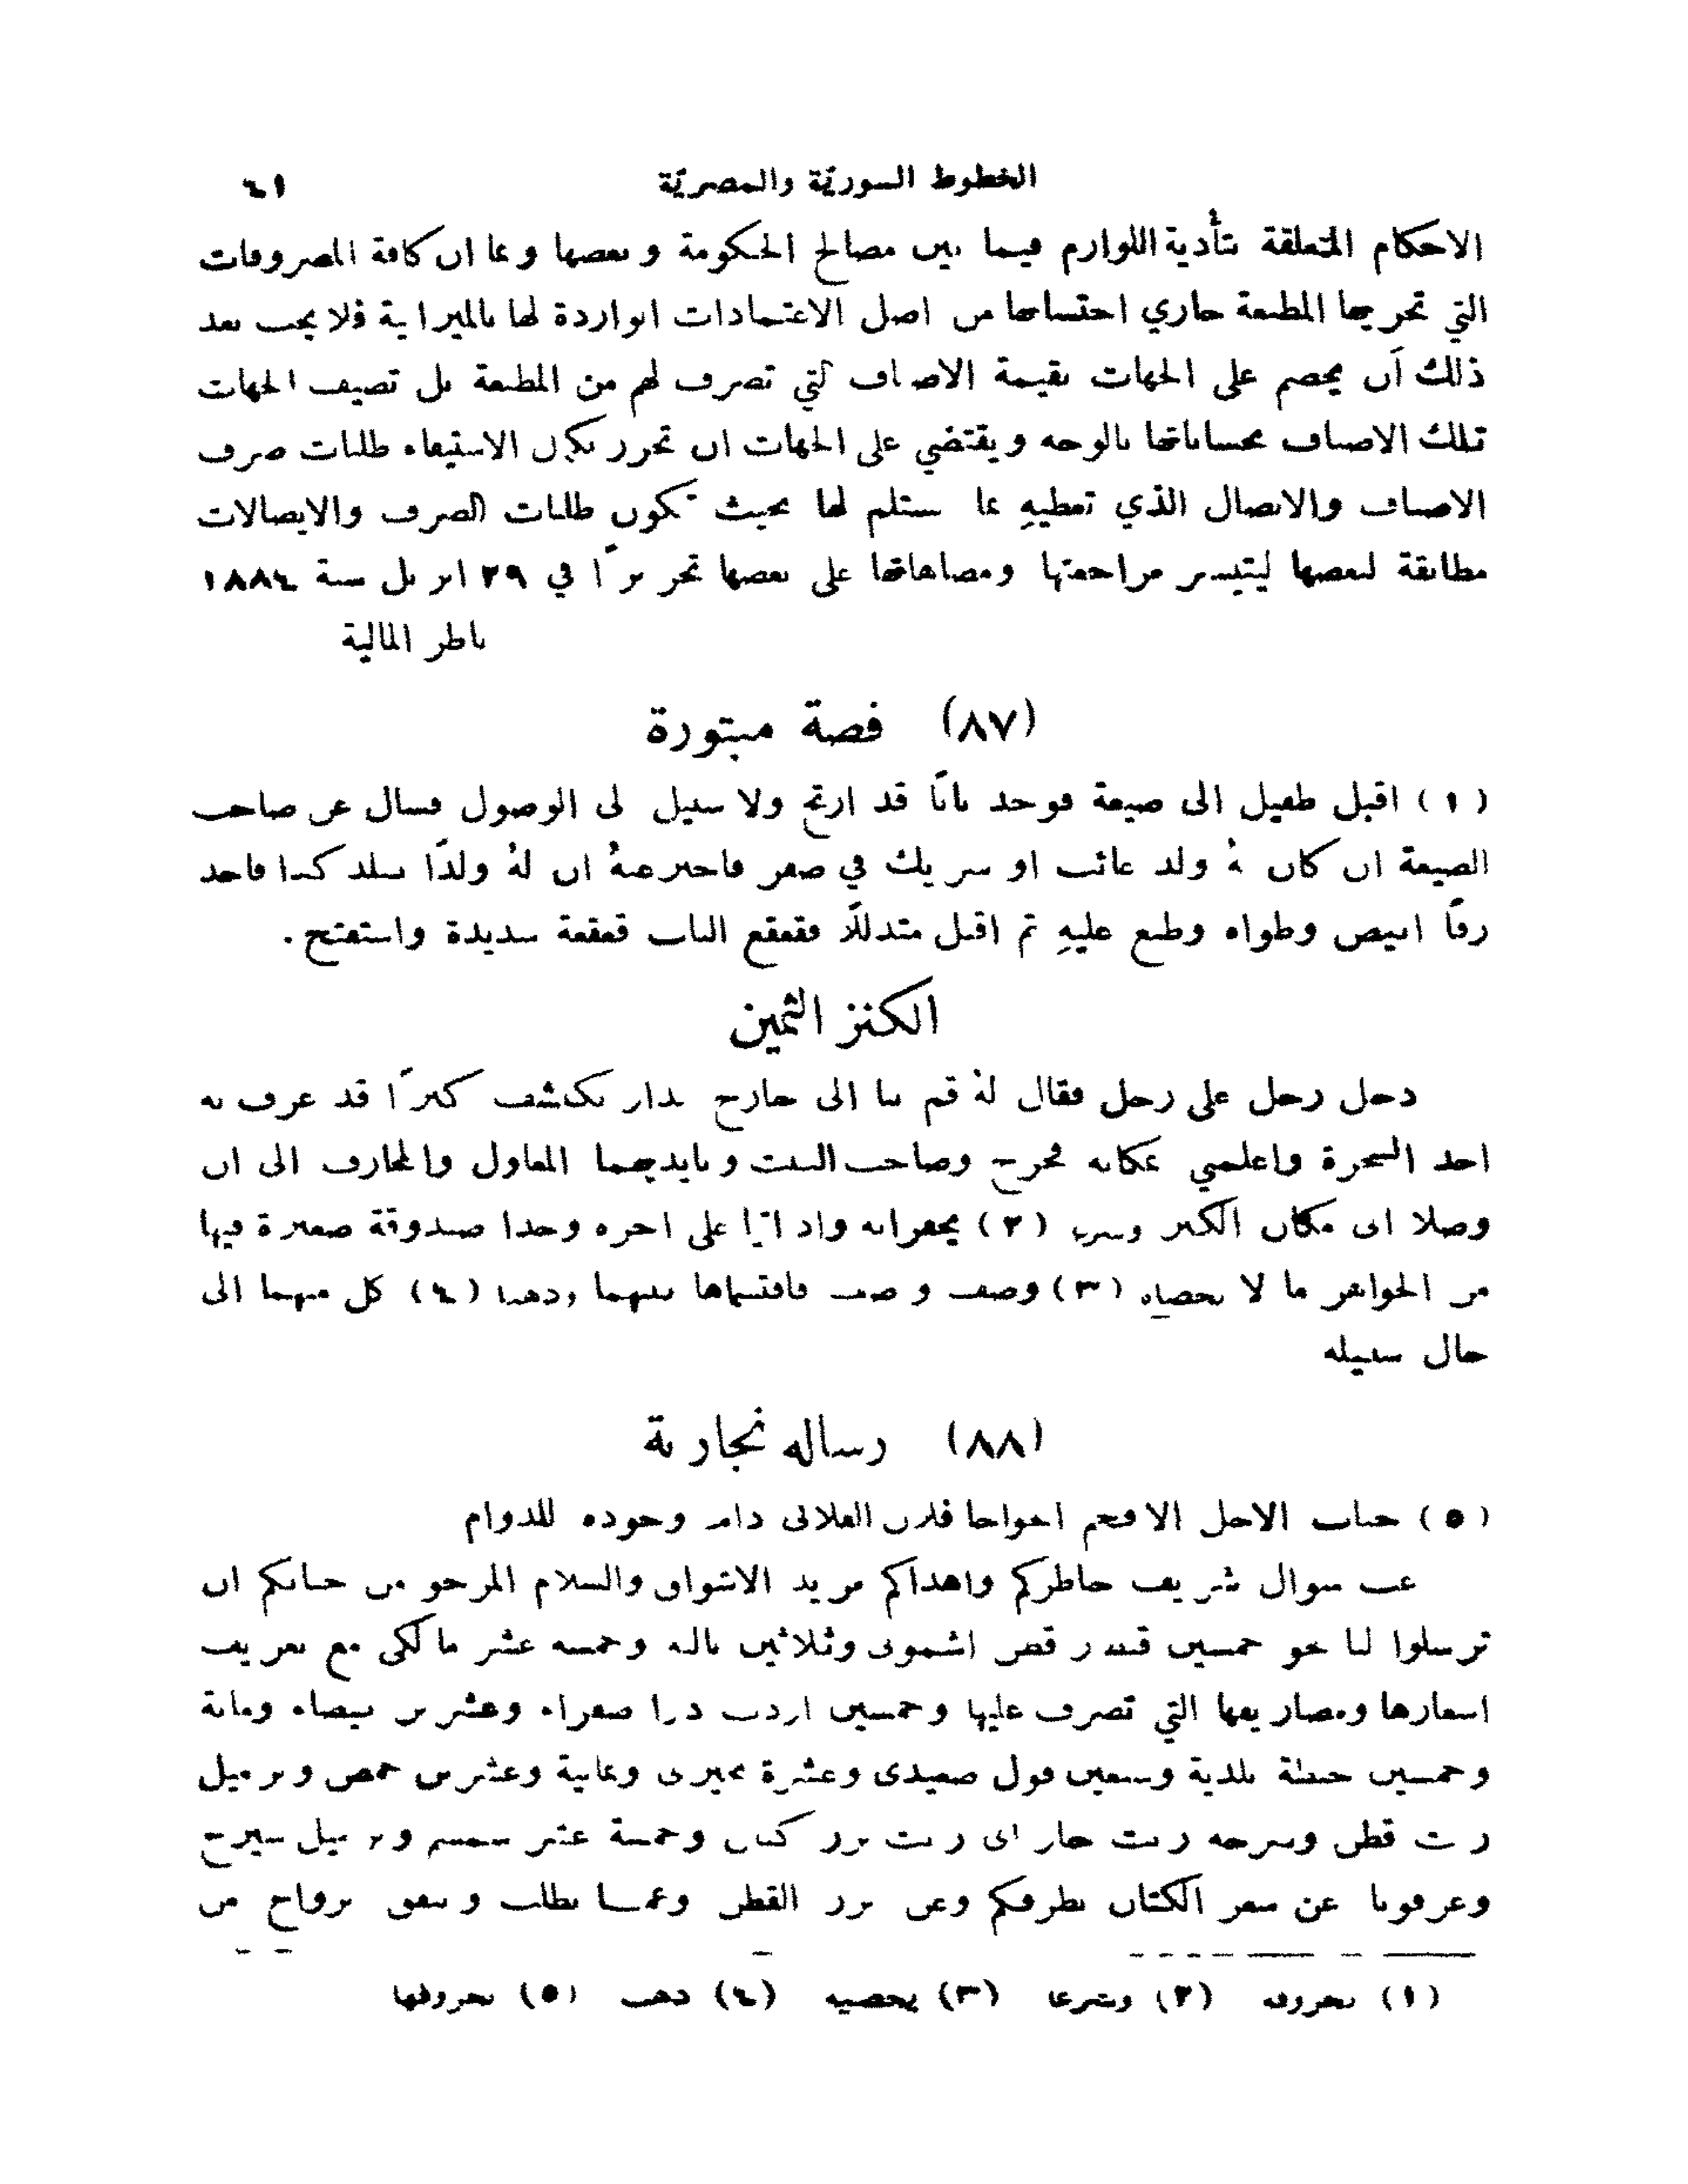 الخطوط السوريّة والمصريّة ٤١
الاحكام المتعلقة بتأدية اللوازم فيما بين مصالح الحكومة وبعضها وبما ان كافة المصروفات
التي تخرجها المطبعة جاري احتسابها من اصل الاعتمادات الواردة لها بالميزانية فلا يجب بعد
ذلك أن يخصم على الجهات بقيمة الاصناف التي تصرف لهم من المطبعة بل تضيف الجهات
تلك الاصناف بحساباتها بالوجه ويقتضي على الجهات ان تحرر بكل الاستيفاء طلبات صرف
الاصناف والايصال الذي تعطيهِ بما يستلم لها بحيث تكون طلبات الصرف والايصالات
مطابقة لبعضها ليتيسر مراجعتها ومضاهاتها على بعضها تحريرًا في ٢٩ ابريل سنة ١٨٨٤
ناظر المالية
(٨٧) قصة مبتورة
(١) اقبل طفيل الى ضيعة فوجد بابًا قد ارتج ولا سبيل الى الوصول فسال عن صاحب
الضيعة ان كان لهُ ولد غائب او شريك في سفر فاخبر عنهُ ان لهُ ولدًا ببلد كذا فاخذ
رقًا ابيض وطواه وطبع عليهِ ثم اقبل متدللًا فقعقع الباب قعقعة شديدة واستفتح.
الكنز الثمين
دخل رجل على رجل فقال لهُ قم بنا الى خارج الدار نكشف كنزًا قد عرف به
احد السحرة واعلمني بمكانه فخرج وصاحب البيت وبايديهما المعاول والمجارف الى ان
وصلا الى مكان الكنز (٢) يحفرانه واذ اتيا على اخره وجدا صندوقة صغيرة فيها
من الجواهر ما لا يحصاه (٣) وصف واصف فاقتسماها بينهما وذهبا (٤) كل منهما الى
حال سبيله
(٨٨) رسالة تجارية
(٥) جناب الاجل الافخم الخواجا فلان الفلانى دام وجوده للدوام
غب سوال شريف خاطركم واهداكم مزيد الاشواق والسلام المرجو من جنابكم ان
ترسلوا لنا نحو خمسين قنطار قطن اشمونى وثلاثين باله وخمسه عشر ماكلى مع تعريف
اسعارها ومصاريفها التي تصرف عليها وخمسين اردب درا صفراء وعشرين بيضاء ومائة
وخمسين حنطة بلدية وسبعين فول صعيدى وعشرة بحيرى وثمانية وعشرين حمص وبرميل
زيت قطن وسرجه زيت حار اى زيت بزر كتان وخمسة عشر سمسم وبرميل سيرج
وعرفونا عن سعر الكتان بطرفكم وعن بزر القطن وعما يطلب وينفق برواج من
(١) بحروفه (٢) وشرعا (٣) يحصيه (٤) ذهب (٥) بحروفها